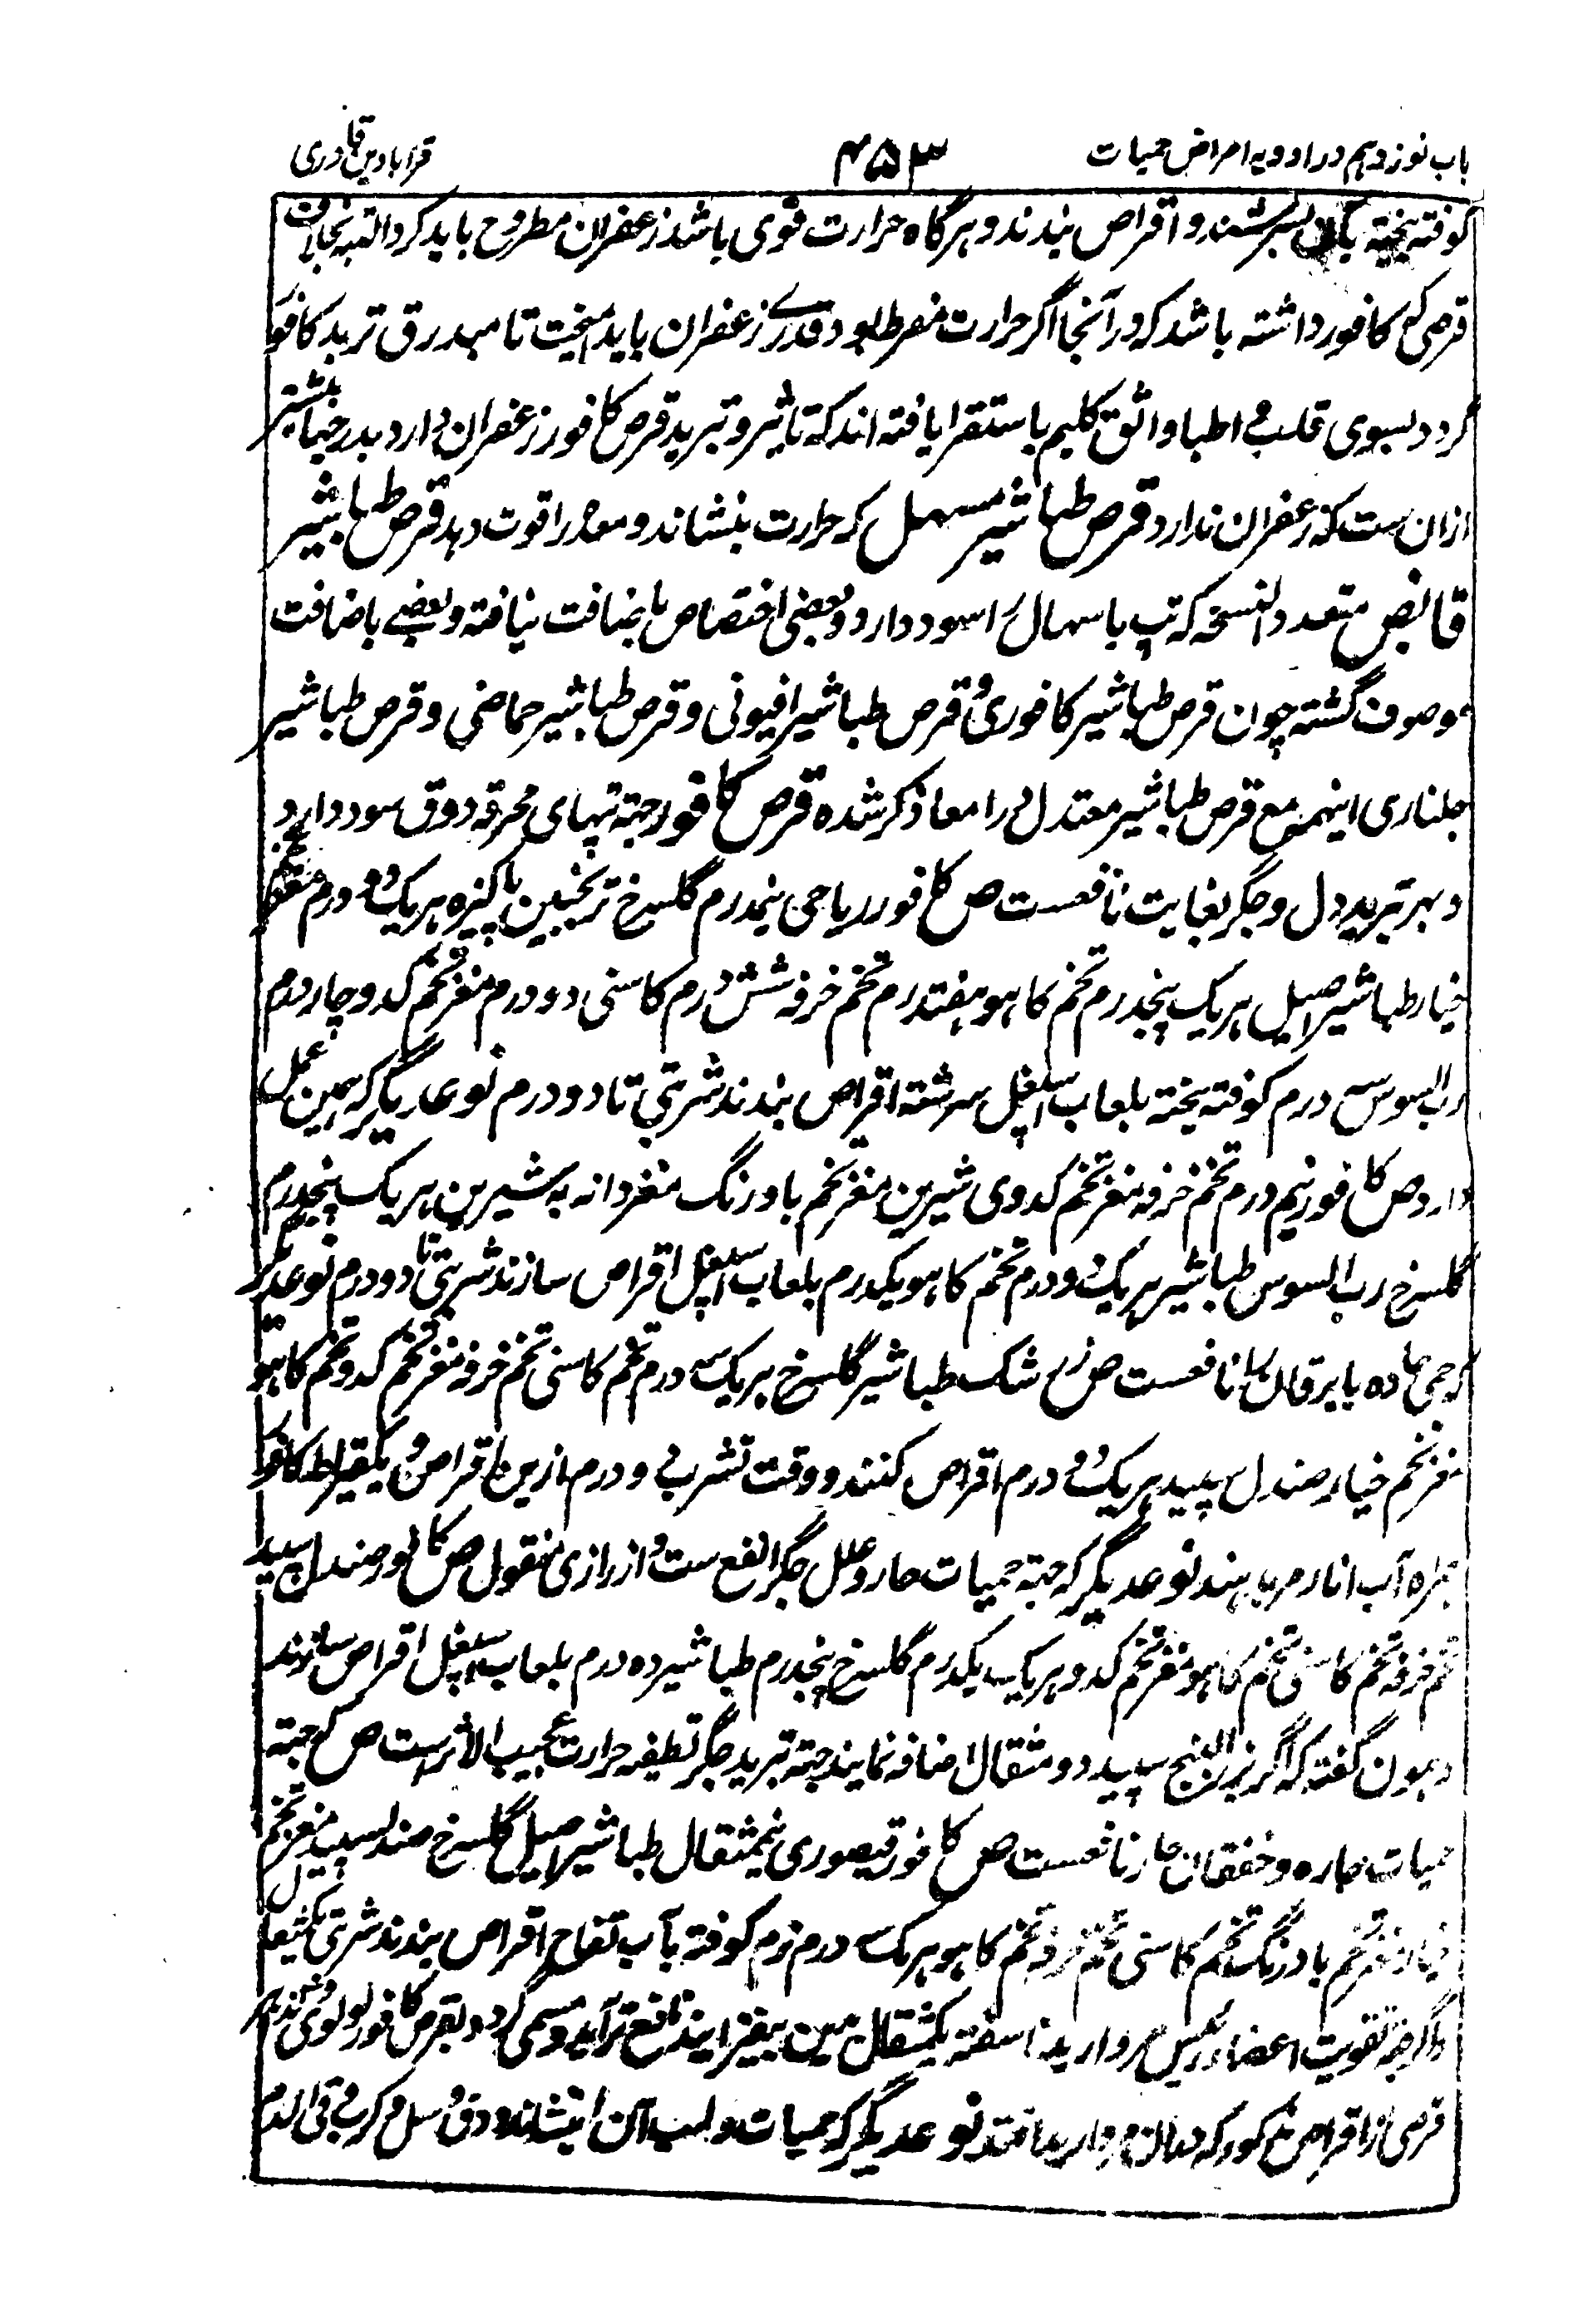 باب نوزدہم در ادویہ امراض حمیات ۴۵۳ قرابادین قادری
کوفتہ بیختہ بآن بسرشند و اقراص بندند و ہرگاہ حرارت قوی باشد زعفران مطروح باید کرد البتہ بخلاف
قرصی کہ کافور داشتہ باشد کہ در آنجا اگر حرارت مفرط بود قدرے زعفران باید آمیخت تا مبدرق تبرید کافور
گردد بسوی قلب و اطبا واثق کلیم باستقرا یافتہ اند کہ تاثیر و تبرید قرص کافور زعفران دارد بدرجہا بیشتر
ازان ست کہ زعفران ندارد قرص طباشیر مسہل کہ حرارت بنشاند و معدہ را قوت دہد قرص طباشیر
قابض متعدد النسخہ کہ تپ با سہال را سود دارد و بعضی اختصاص باضافت نیافتہ و بعضے باضافت
موصوف گشتہ چون قرص طباشیر کافوری و قرص طباشیر افیونی و قرص طباشیر حماضی و قرص طباشیر
جلناری اینہمہ مع قرص طباشیر معتدل در امعا ذکر شدہ قرص کافور جہتہ تپہای محرقہ و دق سود دارد
و بہر تبرید دل و جگر بغایت نافعست ص کافور ریاحی نیمدرم گلسرخ ترنجبین پاکیزہ ہر یک دو درم مغز تخم
خیار طباشیر اصیل ہر یک پنجدرم تخم کاہو ہفتدرم تخم خرفہ شش درم کاسنی دو درم مغز تخم کدو چار درم
رب السوس سہ درم کوفتہ بیختہ بلعاب اسپغل سرشتہ اقراص بندند شربتی تا دو درم نوعدیگر کہ ہمین عمل
دارد ص کافور نیم درم تخم خرفہ مغز تخم کدوی شیرین مغز تخم بادرنگ مغز دانہ بہ شیرین ہر یک پنجدرم
گلسرخ رب السوس طباشیر ہر یک دو درم تخم کاہو یکدرم بلعاب اسپغل اقراص سازند شربتی تا دو درم نوعدیگر
کہ حمی حادہ با یرقان را نافعست ص زرشک طباشیر گلسرخ ہر یک سہ درم تخم کاسنی تخم خرفہ مغز تخم کدو تخم کاہو
مغز تخم خیار صندل سپید ہر یک دو درم اقراص کنند و وقت تشرب دو درم ازین اقراص و یکقیراط کافور
ہمراہ آب انار مر بدہند نوعدیگر کہ جہتہ حمیات حار و علل جگر انفع ست و از رازی منقول ص کافور صندل سپید
تخم خرفہ تخم کاسنی تخم کاہو مغز تخم کدو ہر یک یکدرم گلسرخ پنجدرم طباشیر دہ درم بلعاب اسپغل اقراص سازند
و ہمون گفتہ کہ اگر بزر البنج سپید دو مثقال اضافہ نمایند جہتہ تبرید جگر تطفیہ حرارت عجیب الاثرست ص کہ جہتہ
حمیات حارہ و خفقان حار نافعست ص کافور قیصوری نیمثقال طباشیر اصیل گلسرخ صندل سپید مغز تخم
خیار مغز تخم بادرنگ تخم کاسنی تخم خرفہ تخم کاہو ہر یک سہ درم نرم کوفتہ بآب تفاح اقراص بندند شربتی یکمثقال
و اگر جہتہ تقویت اعضاء رئیس مروارید ناسفتہ یکمثقال بیفزایند نافع تر آید و مسمی گردد بقرص کافور لولوی
قرصی از اقراص مذکور کہ دران مروارید افتد نوعدیگر کہ حمیات و لہب آن بنشاند و دق و سل و کرب و قی الدم